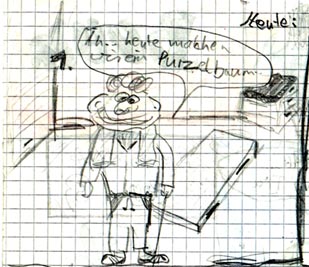 Heute:
Äh... heute machen
wir ein Purzelbaum.
1.